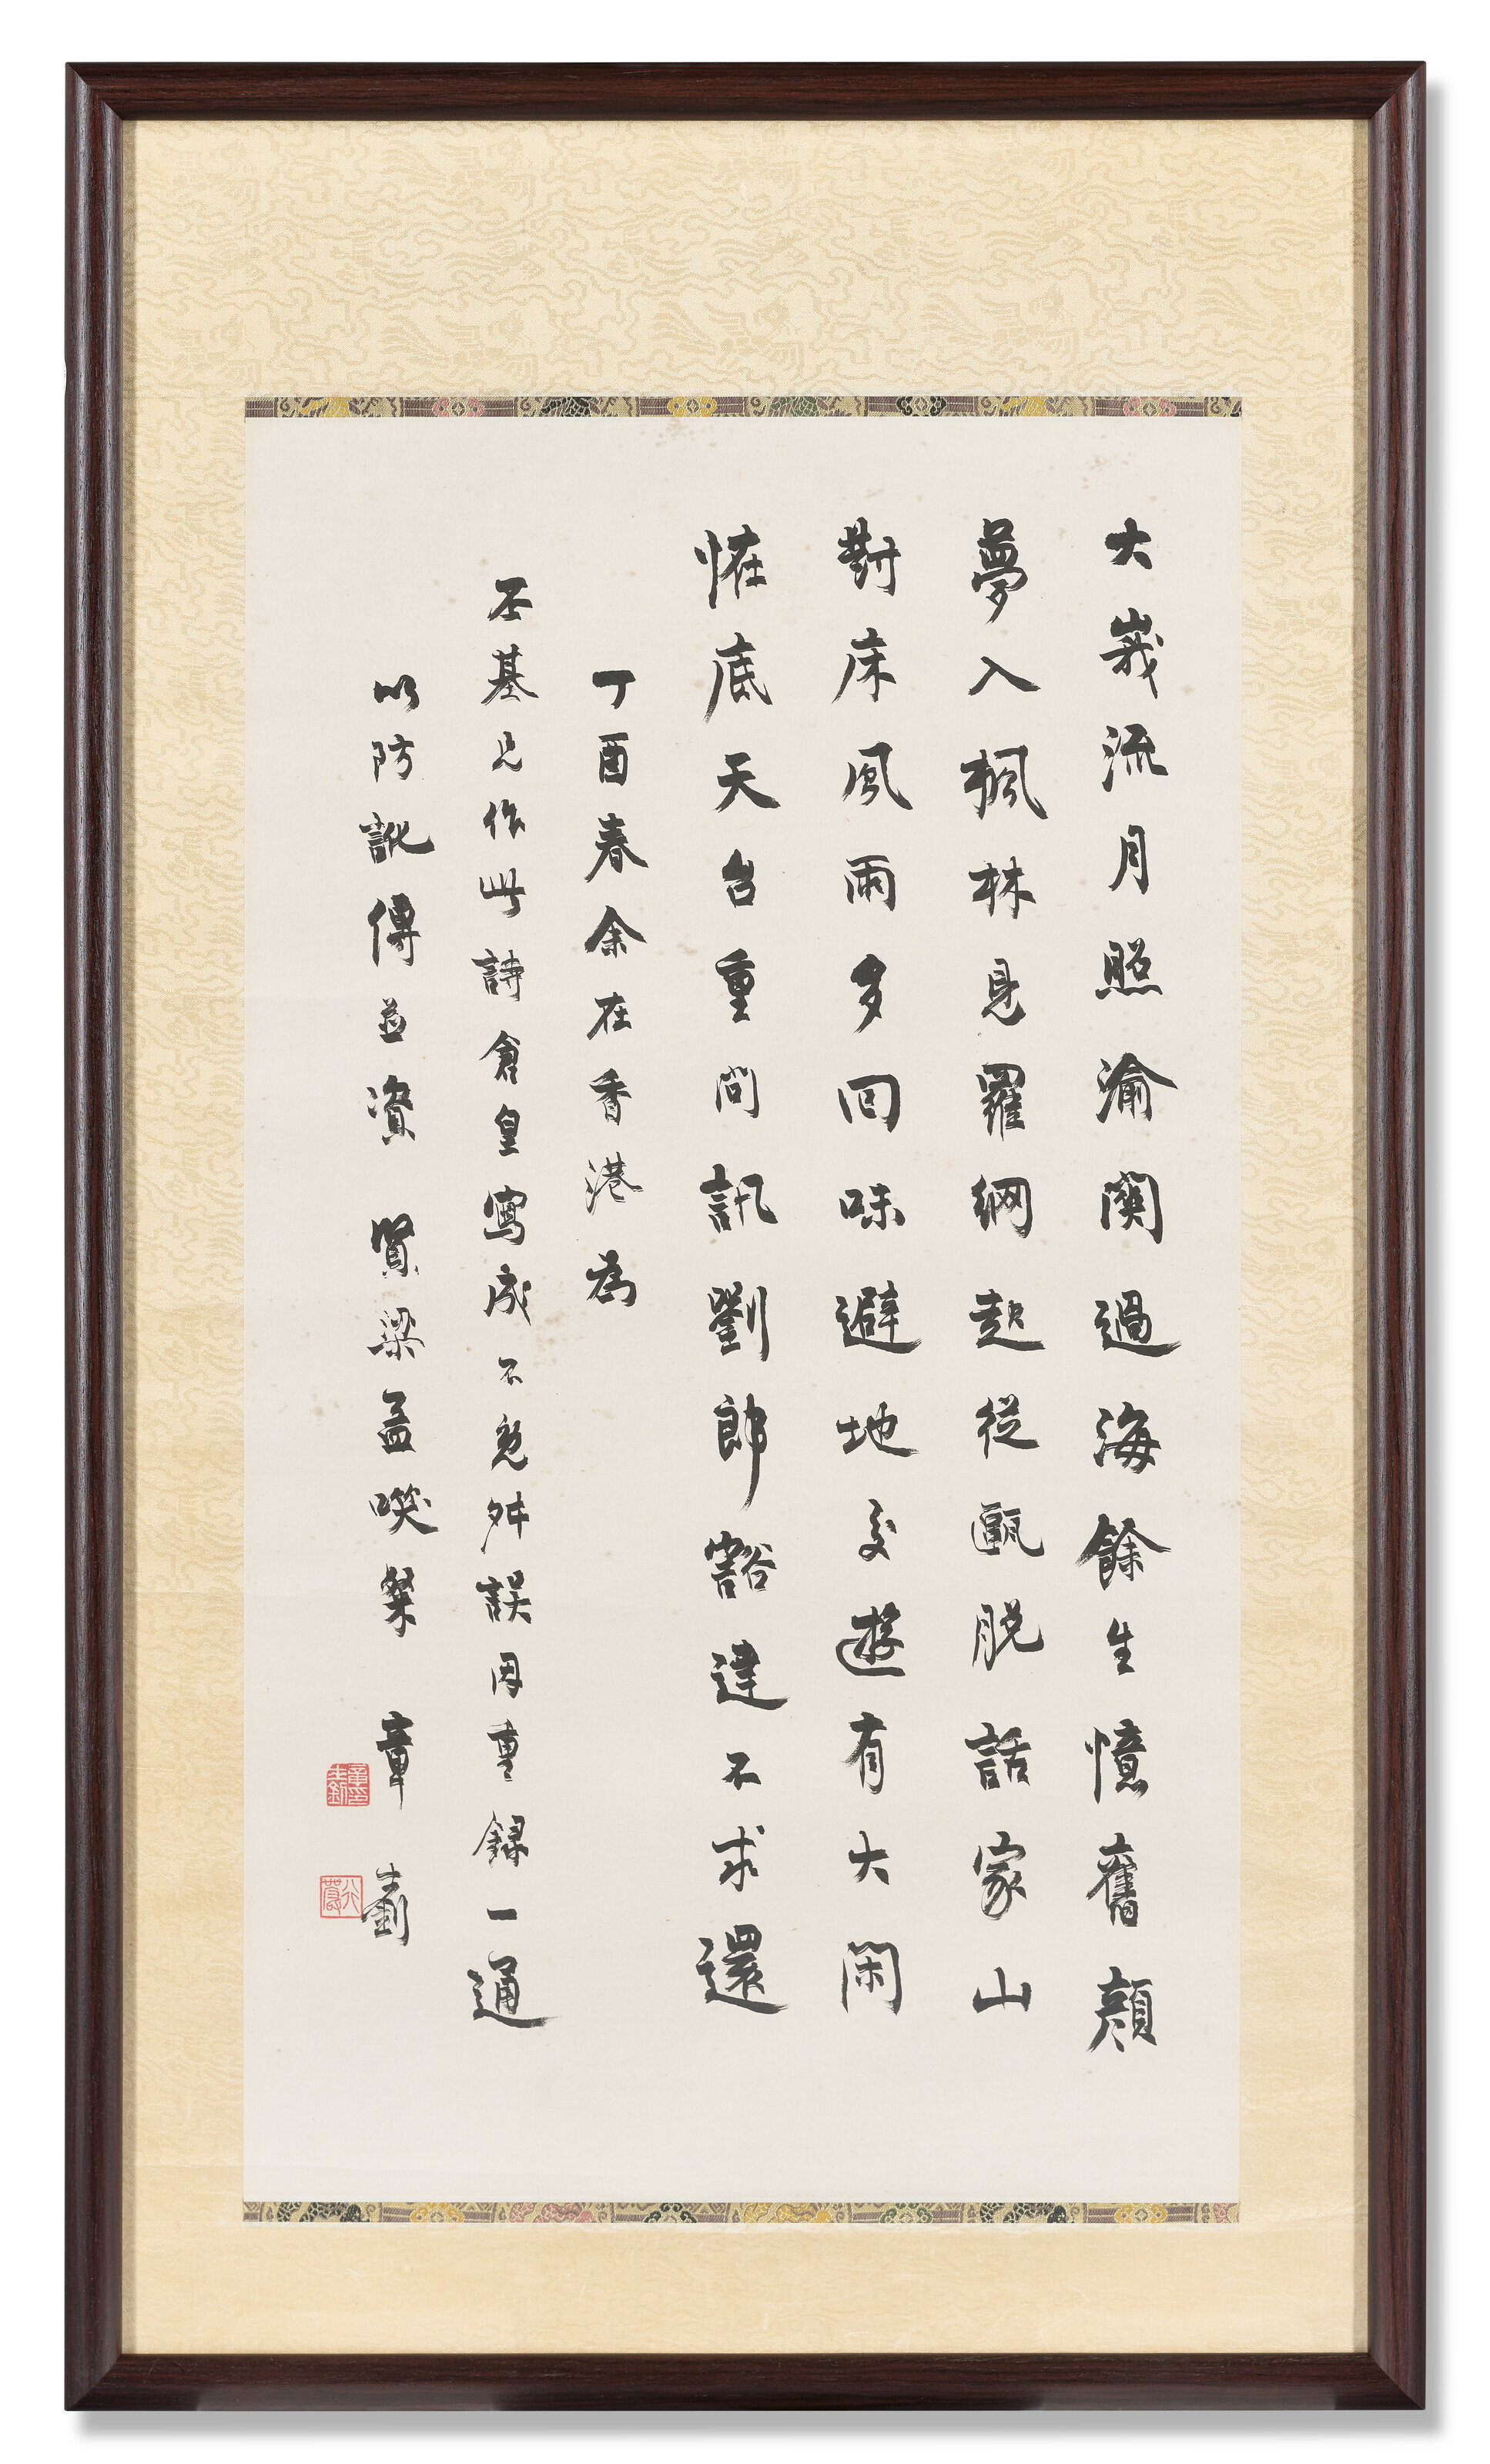 大峩流月照渝關過海餘生憶舊顏
夢入楓林見羅網起從甌脫話家山
對床風雨多回味避地交遊有大閑
恠底天台重問訊劉郎豁達不求還
丁酉春余在香港為
丕基兄作此詩倉皇寫成不免舛誤因重錄一通
以防訛傳並資 賢梁孟噗粲 章士釗
章士釗印
行嚴